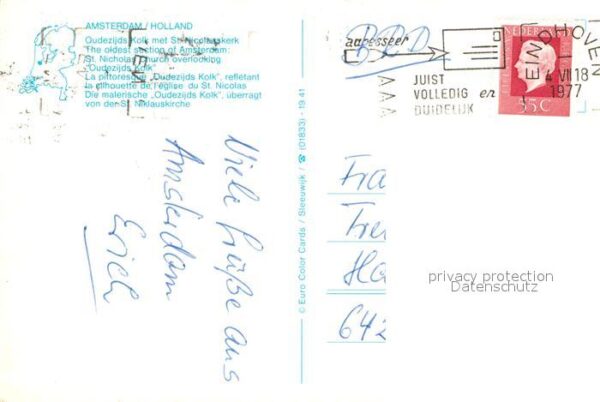 AMSTERDAM / HOLLAND
Oudezijds Kolk met St. Nicolaaskerk
The oldest section of Amsterdam:
St. Nicholas Church overlooking
"Oudezijds Kolk"
La pittoresque "Oudezijds Kolk", reflétant
la silhouette de l'église du St. Nicolas
Die malerische "Oudezijds Kolk", überragt
von der St. Niklauskirche
Viele Grüße aus
Amsterdam
Erich
© Euro Color Cards / Sleeuwijk / ☎ (01833) - 19 41
BRD
adresseer
JUIST
VOLLEDIG en
DUIDELIJK
EINDHOVEN
4 VII 18
1977
NEDERLAND
55 C
Fra
Fre
Ha
642
privacy protection
Datenschutz